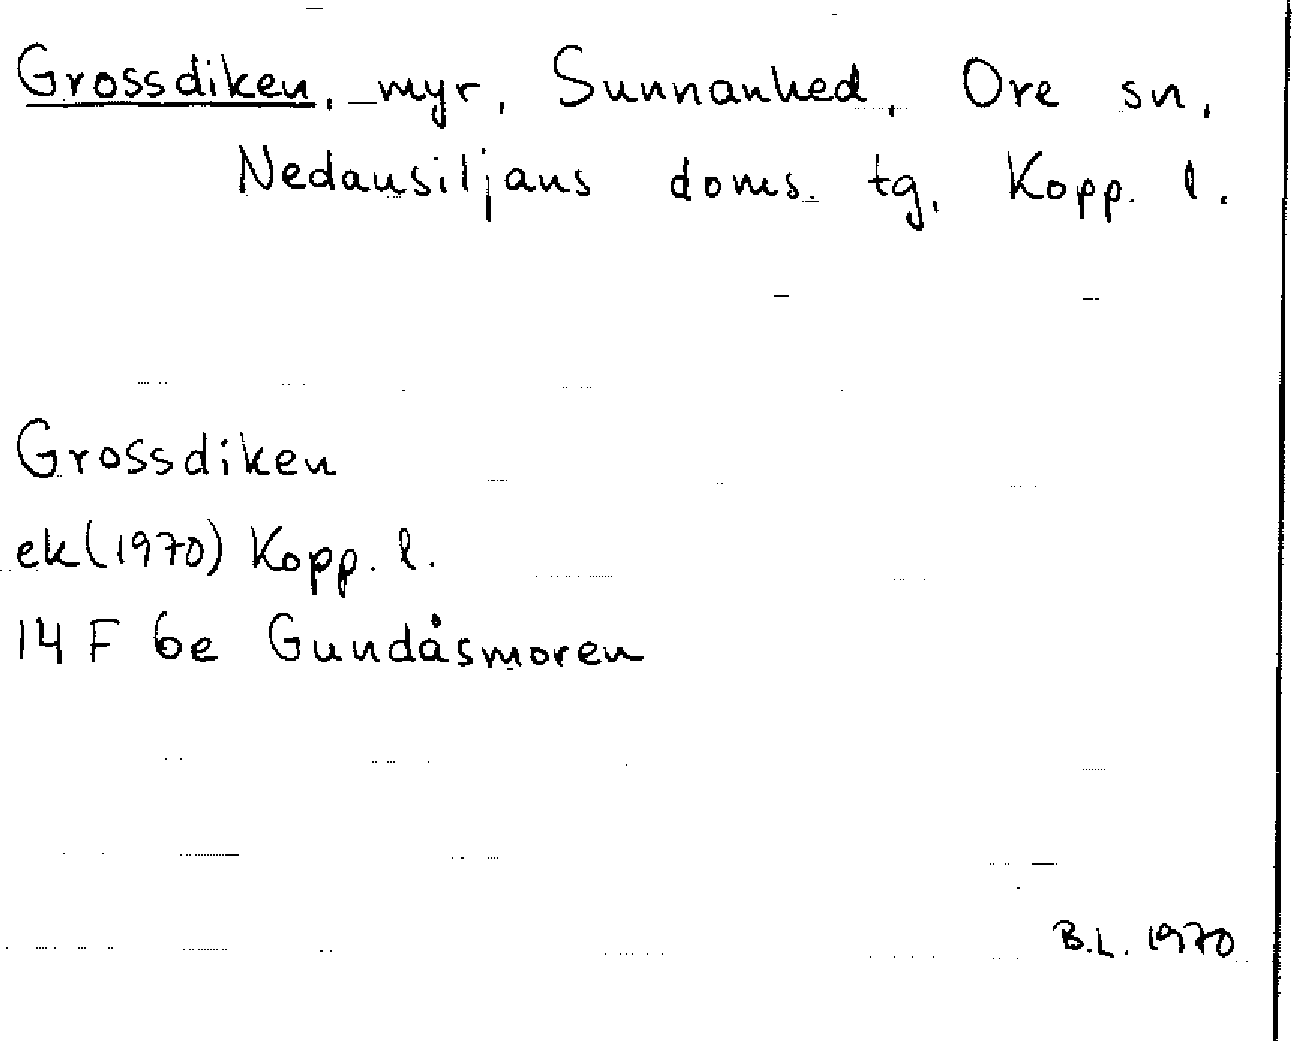 Grossdiken, myr, Sunnanhed, Ore sn,
Nedansiljans doms. tg, Kopp. l.
Grossdiken
ek (1970) Kopp. l.
14 F 6e Gundåsmoren
B.L. 1970